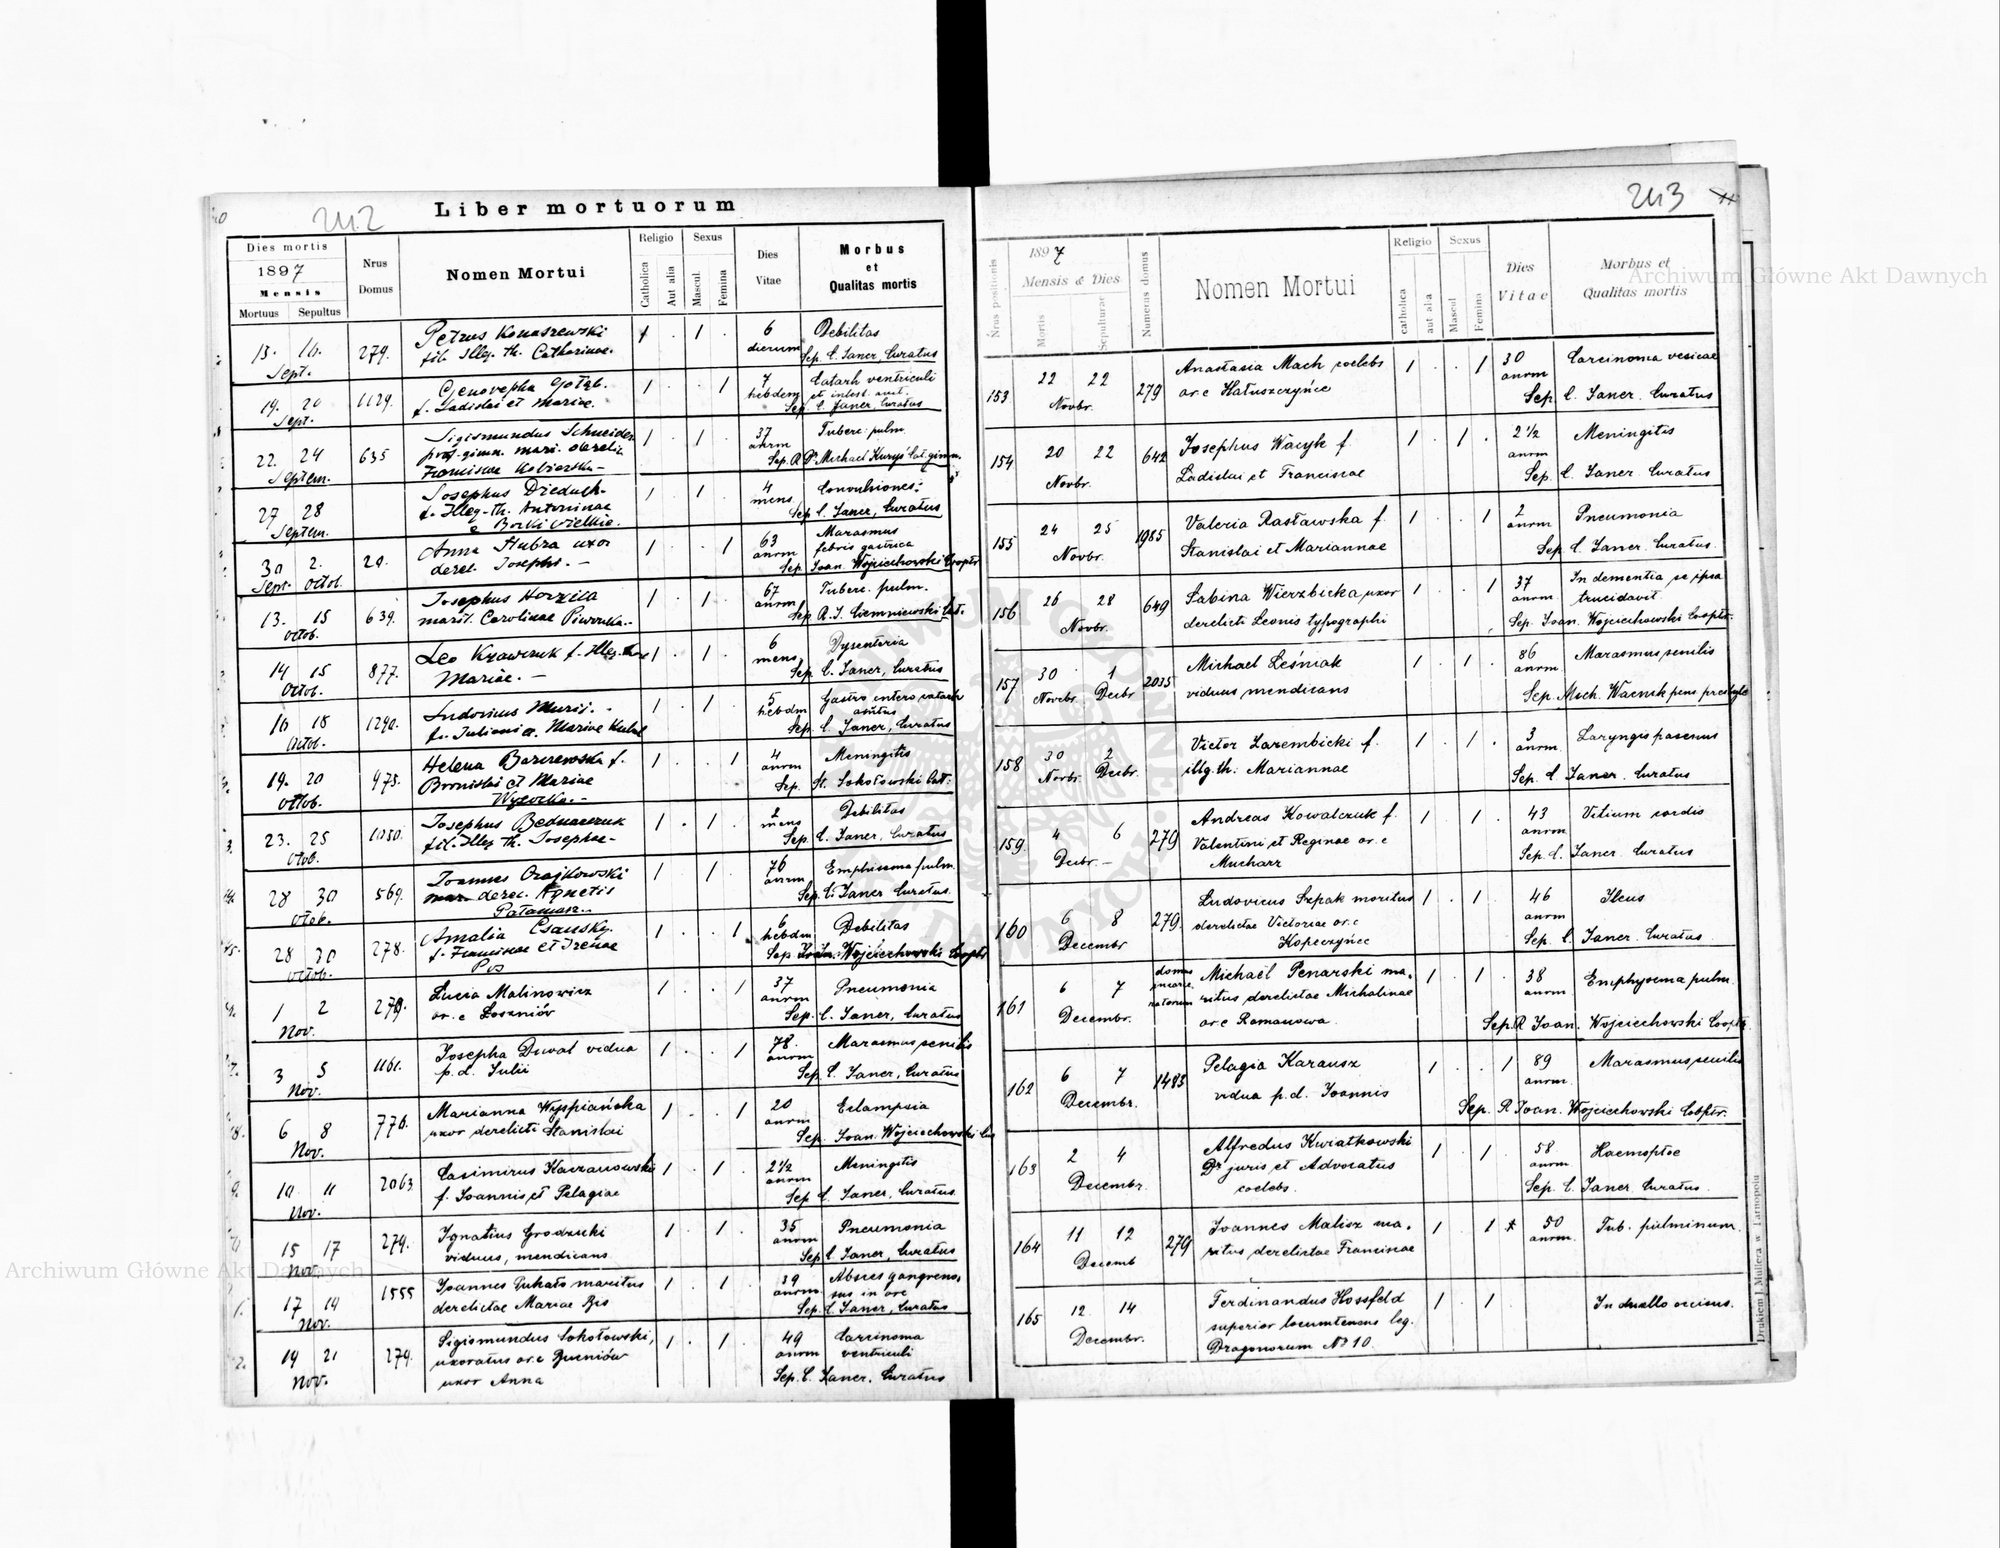 242
Liber mortuorum
Dies mortis
1897
Mensis
Mortuus Sepultus
Nrus
Domus
Nomen Mortui
Religio
Catholica
Aut alia
Sexus
Mascul
Femina
Dies
Vitae
Morbus
et
Qualitas mortis
15. 16.
Sept.
279.
Petrus Konaszewski
fil. Illeg. th. Catharinae.
1 . 1 .
6
dierum
Debilitas
Sep. C. Janer, Curatus
19. 20
Sept.
1129.
Genovepha Gołąb.
f. Ladislai et Mariae.
1 . . 1
7
hebdom
Catarh ventriculi
et intest. acut.
Sep. C. Janer, Curatus
22. 24
Septem.
635
Sigismundus Schneider
prof. gimn. mari. derelic.
Franciscae Kobierska –
1 . 1 .
37
annm
Tuberc. pulm.
Sep. R Dr Michael Kuryś Cat. gimn.
27 28
Septem.
Josephus Dieduch.
f. Illeg. th. Antoninae
e Borki wielkie.
1 . 1 .
4
mens.
Convulsiones.
Sep. C. Janer, Curatus
30 2.
Sept. Octob.
20.
Anna Hubra uxor
derel. Josephi. –
1 . . 1
63
annm
Marasmus
febris gastrica
Sep. Joan. Wojciechowski Cooptr
13. 15
Octob.
639.
Josephus
marit. Carolinae
1 . 1 .
67
annm
Tuberc. pulm.
Sep. R. J. Ciemniewski Cat.
14 15
Octob.
877.
Leo Krawczuk f. Illeg. thori
Mariae. –
1 . 1 .
6
mens.
Dysenteria
Sep. C. Janer, Curatus
16 18
Octob.
1290.
Ludovicus
f. Juliani a. Mariae
1 . 1 .
5
hebdm
Gastro entero catarh
acutus
Sep. C. Janer, Curatus
19. 20
Octob.
475.
Helena Barszewska f.
Bronislai et Mariae
Wysocka. –
1 . . 1
4
annm
Meningitis
Sep. St. Sokołowski Cat.
23. 25
Octob.
1050.
Josephus Bednarczuk
fil. Illeg. th. Josephae –
1 . 1 .
2
mens
Debilitas
Sep. C. Janer, Curatus
28 30
Octob.
569.
Joannes Orajkowski
mar. derel. Agnetis
1 . 1
76
annm
Emphisema pulm.
Sep. C. Janer Curatus.
28 30
Octob.
278.
Amalia
f. Franciscae et Irenae
1 . . 1
6
hebdm
Debilitas
Sep. Joan. Wojciechowski Cooptr
1 2
Nov.
279.
Lucia Malinowicz
or. e Łoszniów
1 . . 1
37
annm
Pneumonia
Sep. C. Janer, Curatus
3 5
Nov.
1161.
Josepha Duval vidua
p. d. Julii
1 . . 1
78.
annm
Marasmus senilis
Sep. C. Janer, Curatus
6 8
Nov.
776.
Marianna Wyspiańska
uxor derelicti Stanislai
1 . . 1
20
annm
Eclampsia
Sep. Joan. Wojciechowski
10 11
Nov.
2063
Casimirus Kaczanowski
f. Joannis et Pelagiae
1 . 1 .
2 1/2
annm
Meningitis
Sep. C. Janer, Curatus.
15 17
Nov.
279.
Ignatius Grodzicki
viduus, mendicans.
1 . 1 .
35
annm
Pneumonia
Sep. C. Janer, Curatus
17 19
Nov.
1555
Joannes Puhało maritus
derelictae Mariae Bis
1 . 1
39
annm
Absces gangreno-
sus in ore
Sep. C. Janer, Curatus
19 21
Nov.
279.
Sigismundus Sokołowski,
uxoratus or. e
uxor Anna
1 . 1
49
annm
Carcinoma
ventriculi
Sep. C. Janer. Curatus
243
Nrus positionis
1897
Mensis & Dies
Mortis
Sepulturae
Numerus domus
Nomen Mortui
Religio
catholica
aut alia
Sexus
Mascul
Femina
Dies
Vitae
Morbus et
Qualitas mortis
153
22 22
Novbr.
279
Anastasia Mach coelebs
or. e Hałuszczyńce
1 . . 1
30
annm
Carcinoma vesicae
Sep. C. Janer. Curatus
154
20 22
Novbr.
642
Josephus Wacyk f.
Ladislai et Franciscae
1 . 1 .
2 1/2
annm
Meningitis
Sep. C. Janer. Curatus
155
24 25
Novbr.
1985
Valeria Rasławska f.
Stanislai et Mariannae
1 . . 1
2
annm
Pneumonia
Sep. C. Janer. Curatus.
156
26 28
Novbr.
649
Sabina Wierzbicka uxor
derelicti Leonis typographi
1 . . 1
37
annm.
In dementia se ipsa
trucidavit.
Sep. Joan. Wojciechowski Cooptr.
157
30 1
Novbr. Decbr
2035
Michael Leśniak
viduus mendicans
1 . 1 .
86
annm
Marasmus senilis
Sep. Mich. Wacnik
158
30 2
Novbr. Decbr.
Victor Zarembicki f.
illg. th. Mariannae
1 . 1 .
3
annm.
Laryngis
Sep. C. Janer. Curatus
159
4 6
Decbr. –
279
Andreas Kowalczuk f.
Valentini et Reginae or. e
Mucharz
1 . 1 .
43
annm
Vitium cordis
Sep. C. Janer. Curatus
160
6 8
Decembr
279.
Ludovicus Szpak maritus
derelictae Victoriae or. e
Kopeczyńce
1 . 1 .
46
annm
Ileus
Sep. C. Janer. Curatus
161
6 7
Decembr.
domus
incarce
ratorum
Michaël Penarski ma-
ritus derelictae Michalinae
or. e Romanowa
1 . 1 .
38
annm
Emphysema pulm.
Sep. R Joan. Wojciechowski Cooptr.
162
6 7
Decembr.
1483
Pelagia Karausz
vidua p. d. Joannis
1 . . 1
89
annm.
Marasmus senilis
Sep. R Joan. Wojciechowski Cooptr.
163
2 4
Decembr.
Alfredus Kwiatkowski
Dr juris et Advocatus
coelebs.
1 . 1 .
58
annm.
Haemoptoe
Sep. C. Janer. Curatus.
164
11 12
Decemb
279
Joannes Malisz ma-
ritus derelictae Francisae
1 . 1
50
annm.
Tub. pulminum.
165
12 14
Decembr.
Ferdinandus Hossfeld
superior locumtenens leg.
Dragonorum No 10.
1 . 1
In duello occisus.
Drukiem J. Müllera w Tarnopolu
Archiwum Główne Akt Dawnych
Archiwum Główne Akt Dawnych